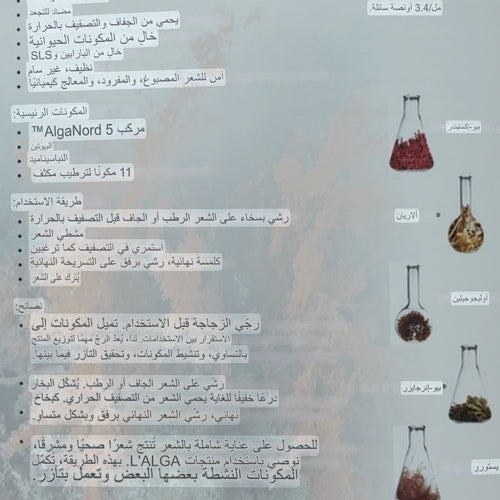 مل/3.4 أونصة سائلة.
مضاد للتجعد
يحمي من الجفاف والتصفيف بالحرارة
خالٍ من المكونات الحيوانية
خالٍ من البارابين وSLS
نظيف، غير سام
آمن للشعر المصبوغ، والمفرود، والمعالج كيميائيًا
المكونات الرئيسية:
مركب AlgaNord 5™
البيوتين
النياسيناميد
11 مكونًا لترطيب مكثف
طريقة الاستخدام:
رشي بسخاء على الشعر الرطب أو الجاف قبل التصفيف بالحرارة
مشطي الشعر
استمري في التصفيف كما ترغبين
كلمسة نهائية، رشي برفق على التسريحة النهائية
يُترك على الشعر
نصائح:
رجّي الزجاجة قبل الاستخدام. تميل المكونات إلى
الاستقرار بين الاستخدامات. لذا، يُعدّ الرجّ مهمًا لتوزيع المنتج
بالتساوي، وتنشيط المكونات، وتحقيق التآزر فيما بينها.
رشّي على الشعر الجاف أو الرطب. يُشكّل البخار
درعًا خفيفًا للغاية يحمي الشعر من التصفيف الحراري. كبخاخ
نهائي، رشّي الشعر النهائي برفق وبشكل متساوٍ.
للحصول على عناية شاملة بالشعر تُنتج شعرًا صحيًا ومشرقًا،
نوصي باستخدام منتجات L'ALGA. بهذه الطريقة، تُكمّل
المكونات النشطة بعضها البعض وتعمل بتآزر.
بيو-إكستيندر
ألاريان
أوليجوجيلين
بيو-إنرجايزر
يستورر